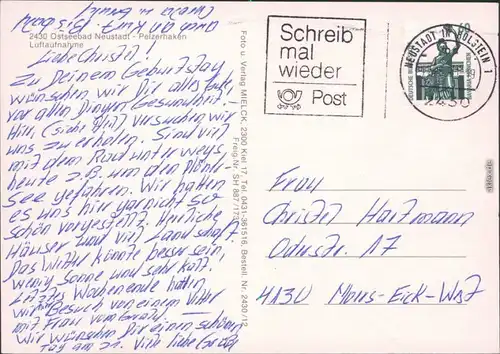 und an Kurt. Bis bald
2430 Ostseebad Neustadt - Pelzerhaken
Luftaufnahme
Liebe Christel!
Zu Deinem Geburtstag
wünschen wir Dir alles Gute,
vor allen Dingen Gesundheit.
Hier, (siehe Bild) versuchen wir
uns zu erholen. Sind viel
mit dem Rad unterwegs,
heute z.B. um den
See gefahren. Wir hatten
es uns hier gar nicht so
schön vorgestellt. Herrliche
Häuser und viel Landschaft.
Das Wetter könnte besser sein,
wenig Sonne und sehr kalt.
Letztes Wochenende hatten
wir Besuch von einem Vetter
mit Frau vom
Wir wünschen Dir einen schönen
Tag am 21. Viele liebe Grüße
Foto u. Verlag MIELCK, 2300 Kiel 17, Tel. 0431-361516, Bestell. Nr. 2430/12
Freig. Nr. SH 887/173
Schreib
mal
wieder
Post
NEUSTADT IN HOLSTEIN 1
2430
60
Frau
Christel Hartmann
Oderstr. 17
4130 Moers-Eick-West